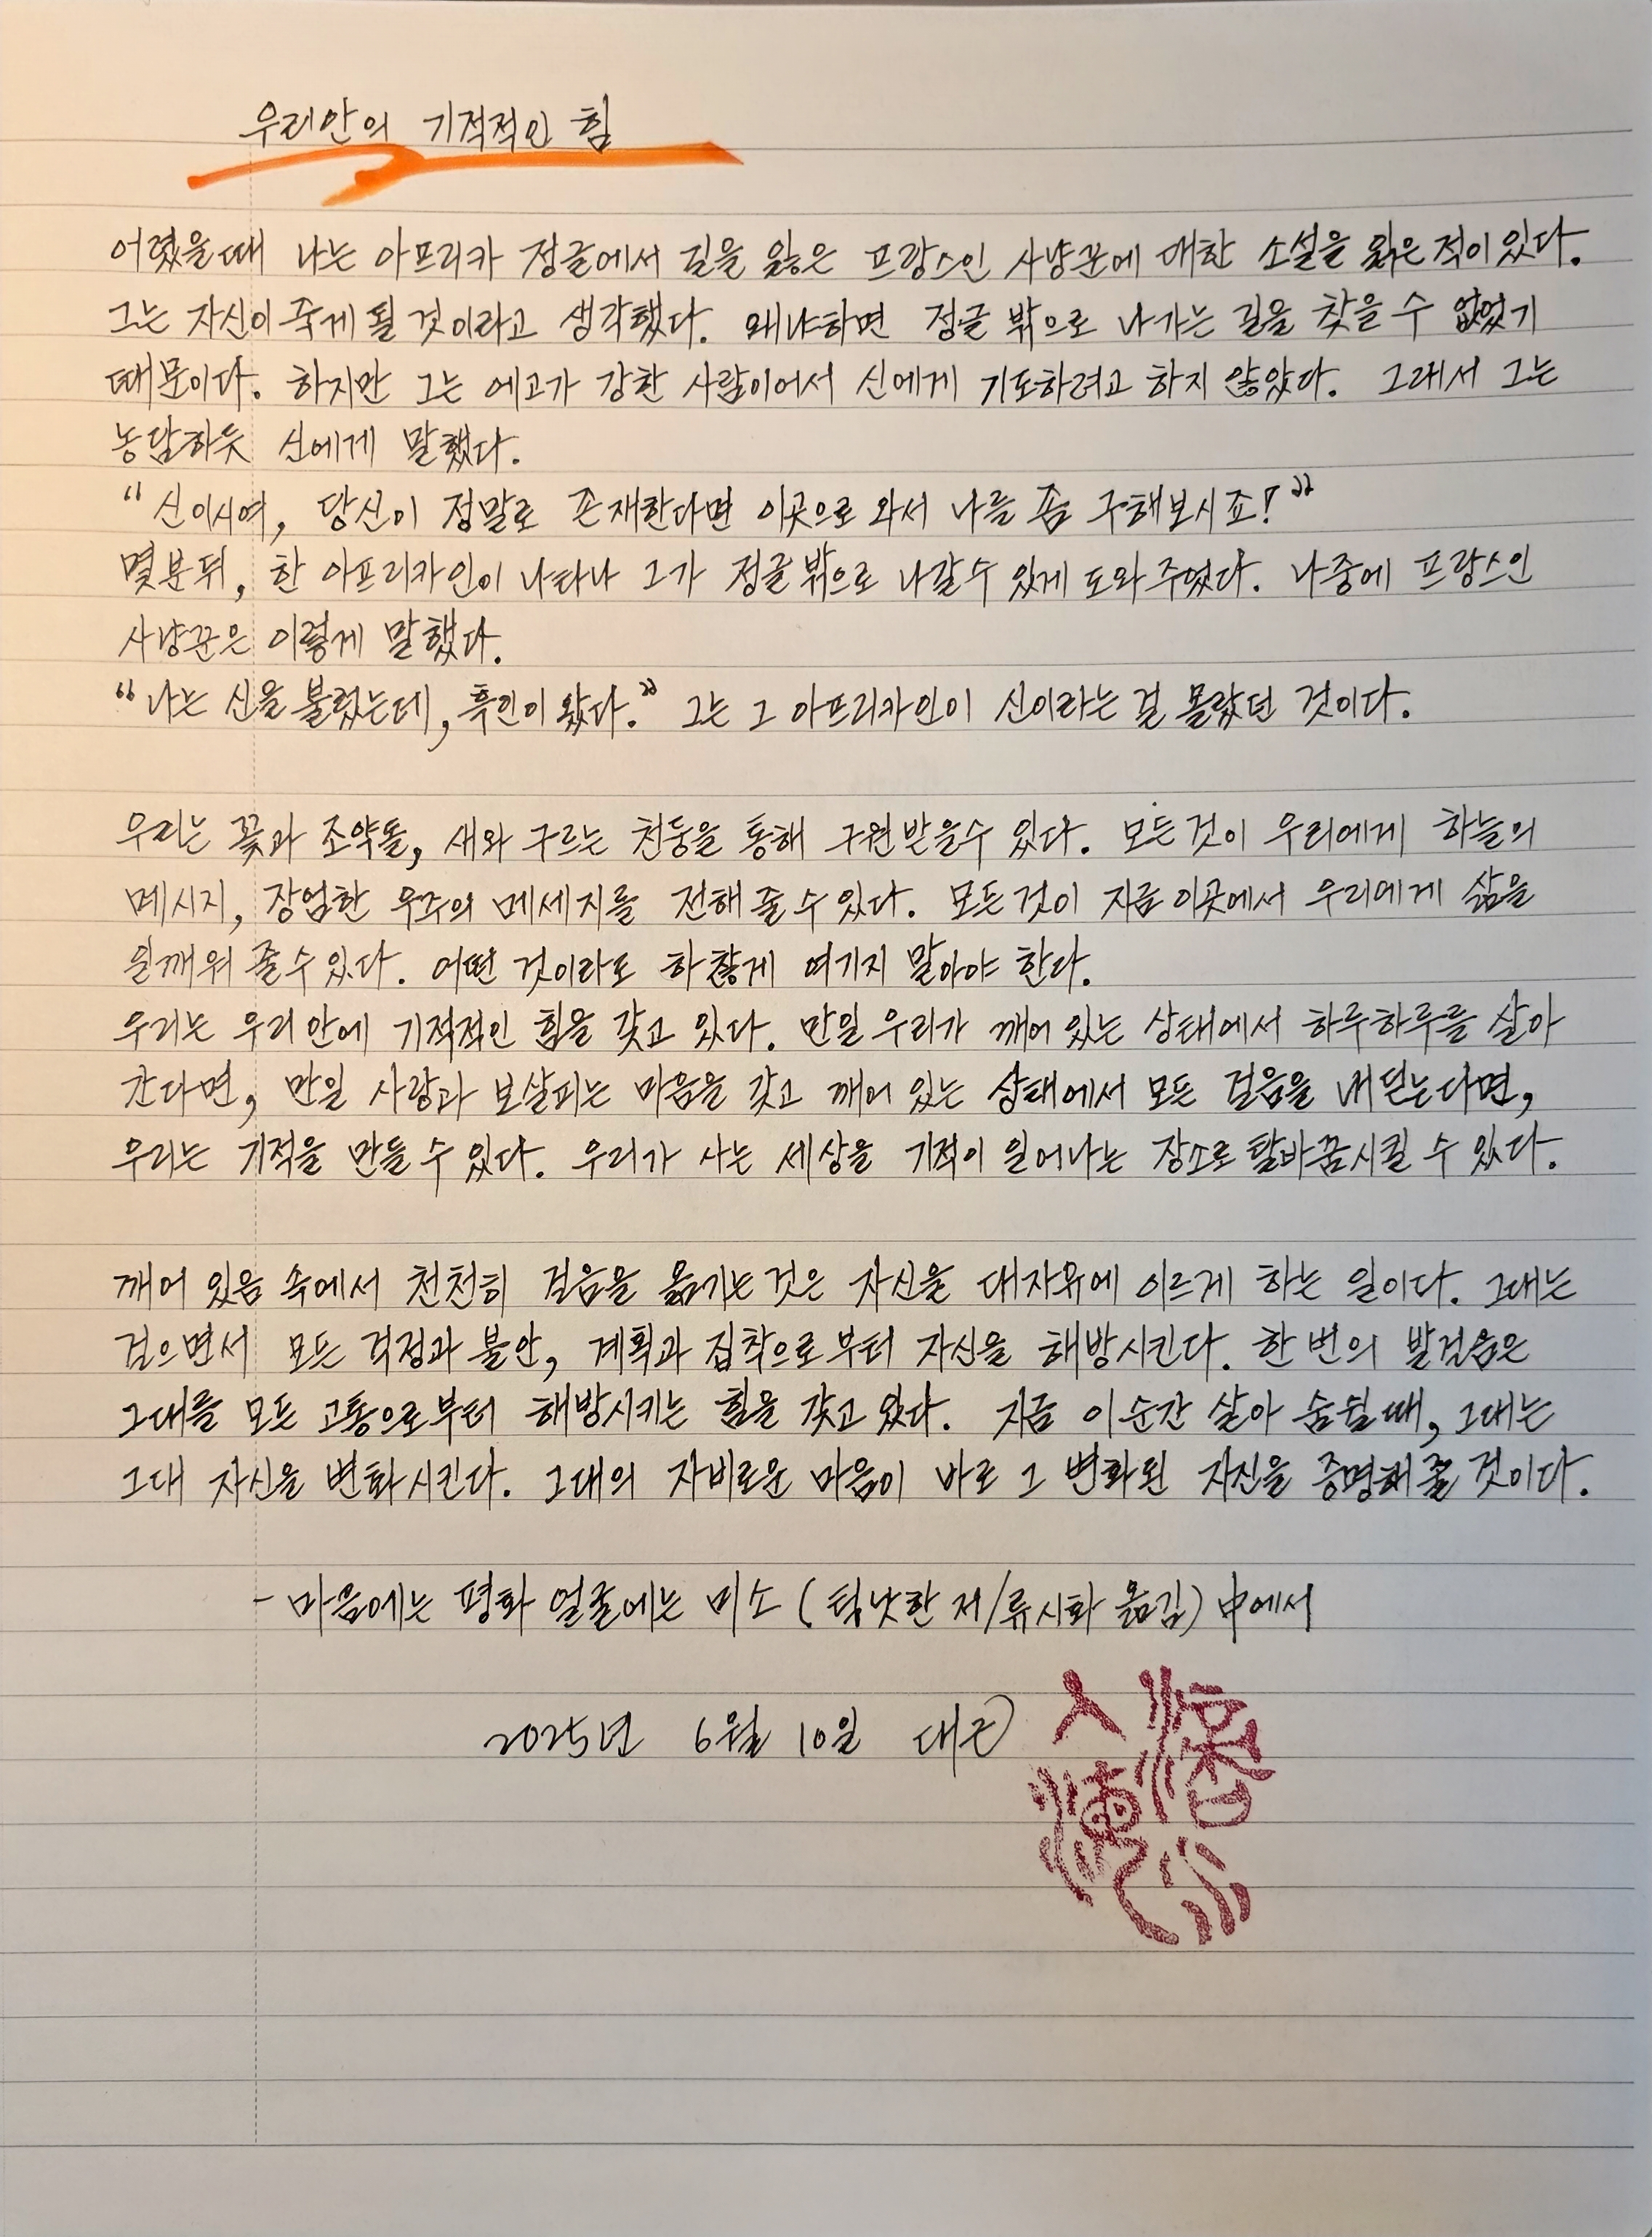 우리안의 기적적인 힘
어렸을때 나는 아프리카 정글에서 길을 잃은 프랑스인 사냥꾼에 대한 소설을 읽은 적이 있다.
그는 자신이 죽게 될 것이라고 생각했다. 왜냐하면 정글 밖으로 나가는 길을 찾을 수 없었기
때문이다. 하지만 그는 에고가 강한 사람이어서 신에게 기도하려고 하지 않았다. 그래서 그는
농담하듯 신에게 말했다.
"신이시여, 당신이 정말로 존재한다면 이곳으로 와서 나를 좀 구해보시죠!"
몇분뒤, 한 아프리카인이 나타나 그가 정글 밖으로 나갈수 있게 도와 주었다. 나중에 프랑스인
사냥꾼은 이렇게 말했다.
"나는 신을 불렀는데, 흑인이 왔다." 그는 그 아프리카인이 신이라는 걸 몰랐던 것이다.
우리는 꽃과 조약돌, 새와 구르는 천둥을 통해 구원받을수 있다. 모든것이 우리에게 하늘의
메시지, 장엄한 우주의 메세지를 전해 줄 수 있다. 모든것이 지금 이곳에서 우리에게 삶을
일깨워 줄 수 있다. 어떤 것이라도 하찮게 여기지 말아야 한다.
우리는 우리 안에 기적적인 힘을 갖고 있다. 만일 우리가 깨어 있는 상태에서 하루하루를 살아
간다면, 만일 사랑과 보살피는 마음을 갖고 깨어 있는 상태에서 모든 걸음을 내딛는다면,
우리는 기적을 만들 수 있다. 우리가 사는 세상을 기적이 일어나는 장소로 탈바꿈시킬 수 있다.
깨어 있음 속에서 천천히 걸음을 옮기는 것은 자신을 대자유에 이르게 하는 일이다. 그대는
걸으면서 모든 걱정과 불안, 계획과 집착으로부터 자신을 해방시킨다. 한 번의 발걸음은
그대를 모든 고통으로부터 해방시키는 힘을 갖고 있다. 지금 이 순간 살아 숨쉴때, 그대는
그대 자신을 변화시킨다. 그대의 자비로운 마음이 바로 그 변화된 자신을 증명해 줄 것이다.
- 마음에는 평화 얼굴에는 미소 (틱낫한 저/류시화 옮김) 中에서
2025년 6월 10일 대근